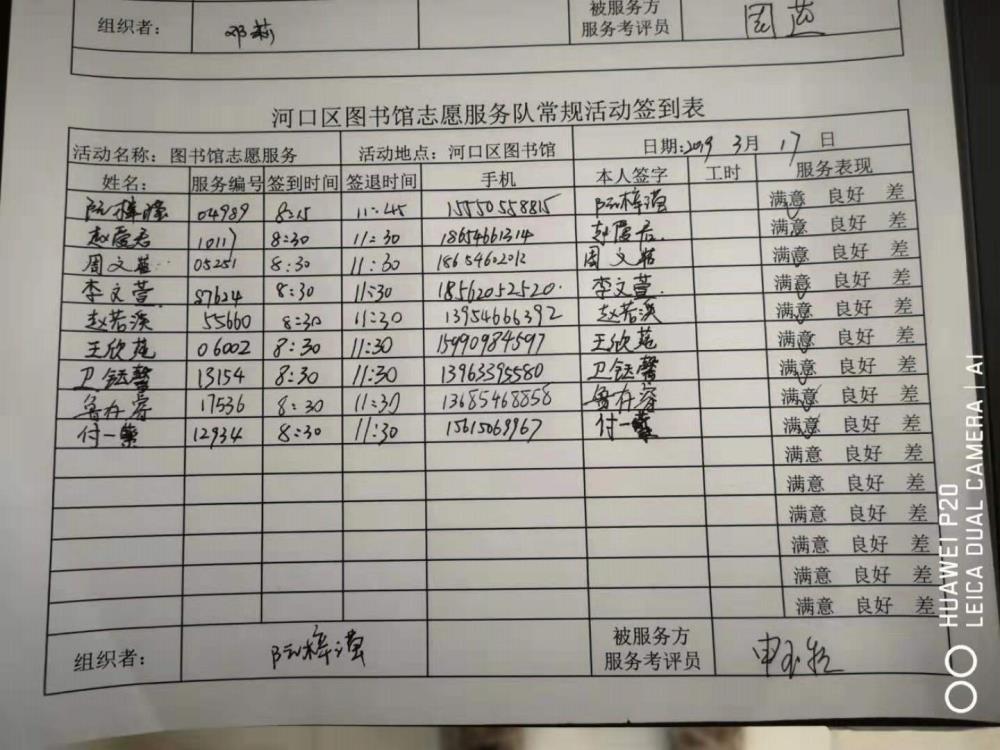 组织者： 邓莉 被服务方
服务考评员
河口区图书馆志愿服务队常规活动签到表
活动名称：图书馆志愿服务 活动地点：河口区图书馆 日期:2019 3月 17 日
姓名： 服务编号 签到时间 签退时间 手机 本人签字 工时 服务表现
04989 8:15 11:45 15550558815 满意 良好 差
赵霞君 1011 8:30 11:30 18654661314 赵霞君 满意 良好 差
周文 05251 8:30 11:30 周文 满意 良好 差
李文萱 87624 8:30 11:30 18562052520 李文萱 满意 良好 差
赵若溪 55660 8:30 11:30 13954666392 赵若溪 满意 良好 差
王欣苑 06002 8:30 11:30 15990984597 王欣苑 满意 良好 差
卫钰馨 13154 8:30 11:30 13963395580 卫钰馨 满意 良好 差
17536 8:30 11:30 13685468858 满意 良好 差
付一 12934 8:30 11:30 15615069967 付一 满意 良好 差
满意 良好 差
满意 良好 差
满意 良好 差
满意 良好 差
满意 良好 差
满意 良好 差
组织者： 被服务方
服务考评员
HUAWEI P20
LEICA DUAL CAMERA | AI